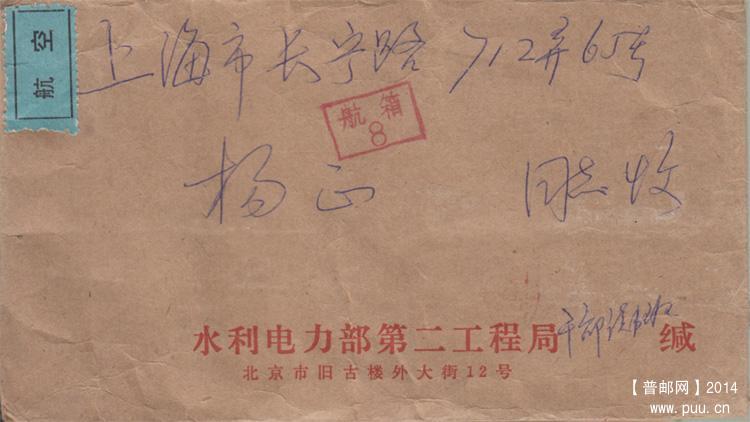 航空
上海市长宁路712弄65号
航箱
8
杨正 同志收
水利电力部第二工程局干部 班 缄
北京市旧古楼外大街12号
【普邮网】2014
www.puu.cn